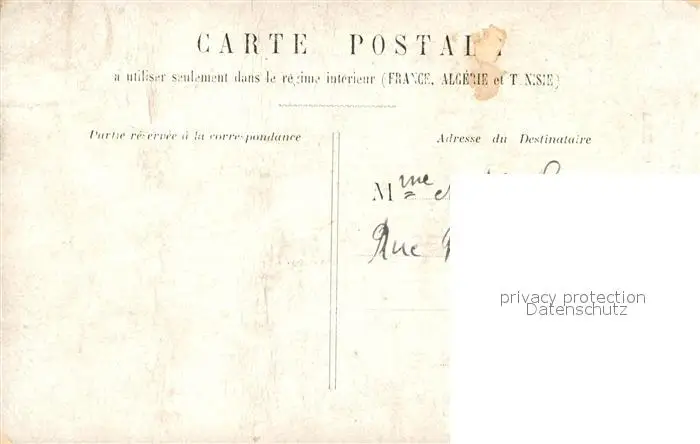 CARTE POSTALE
a utiliser seulement dans le régime intérieur (FRANCE, ALGÉRIE et TUNISIE)
Partie réservée à la correspondance
Adresse du Destinataire
Mme
Rue
privacy protection
Datenschutz